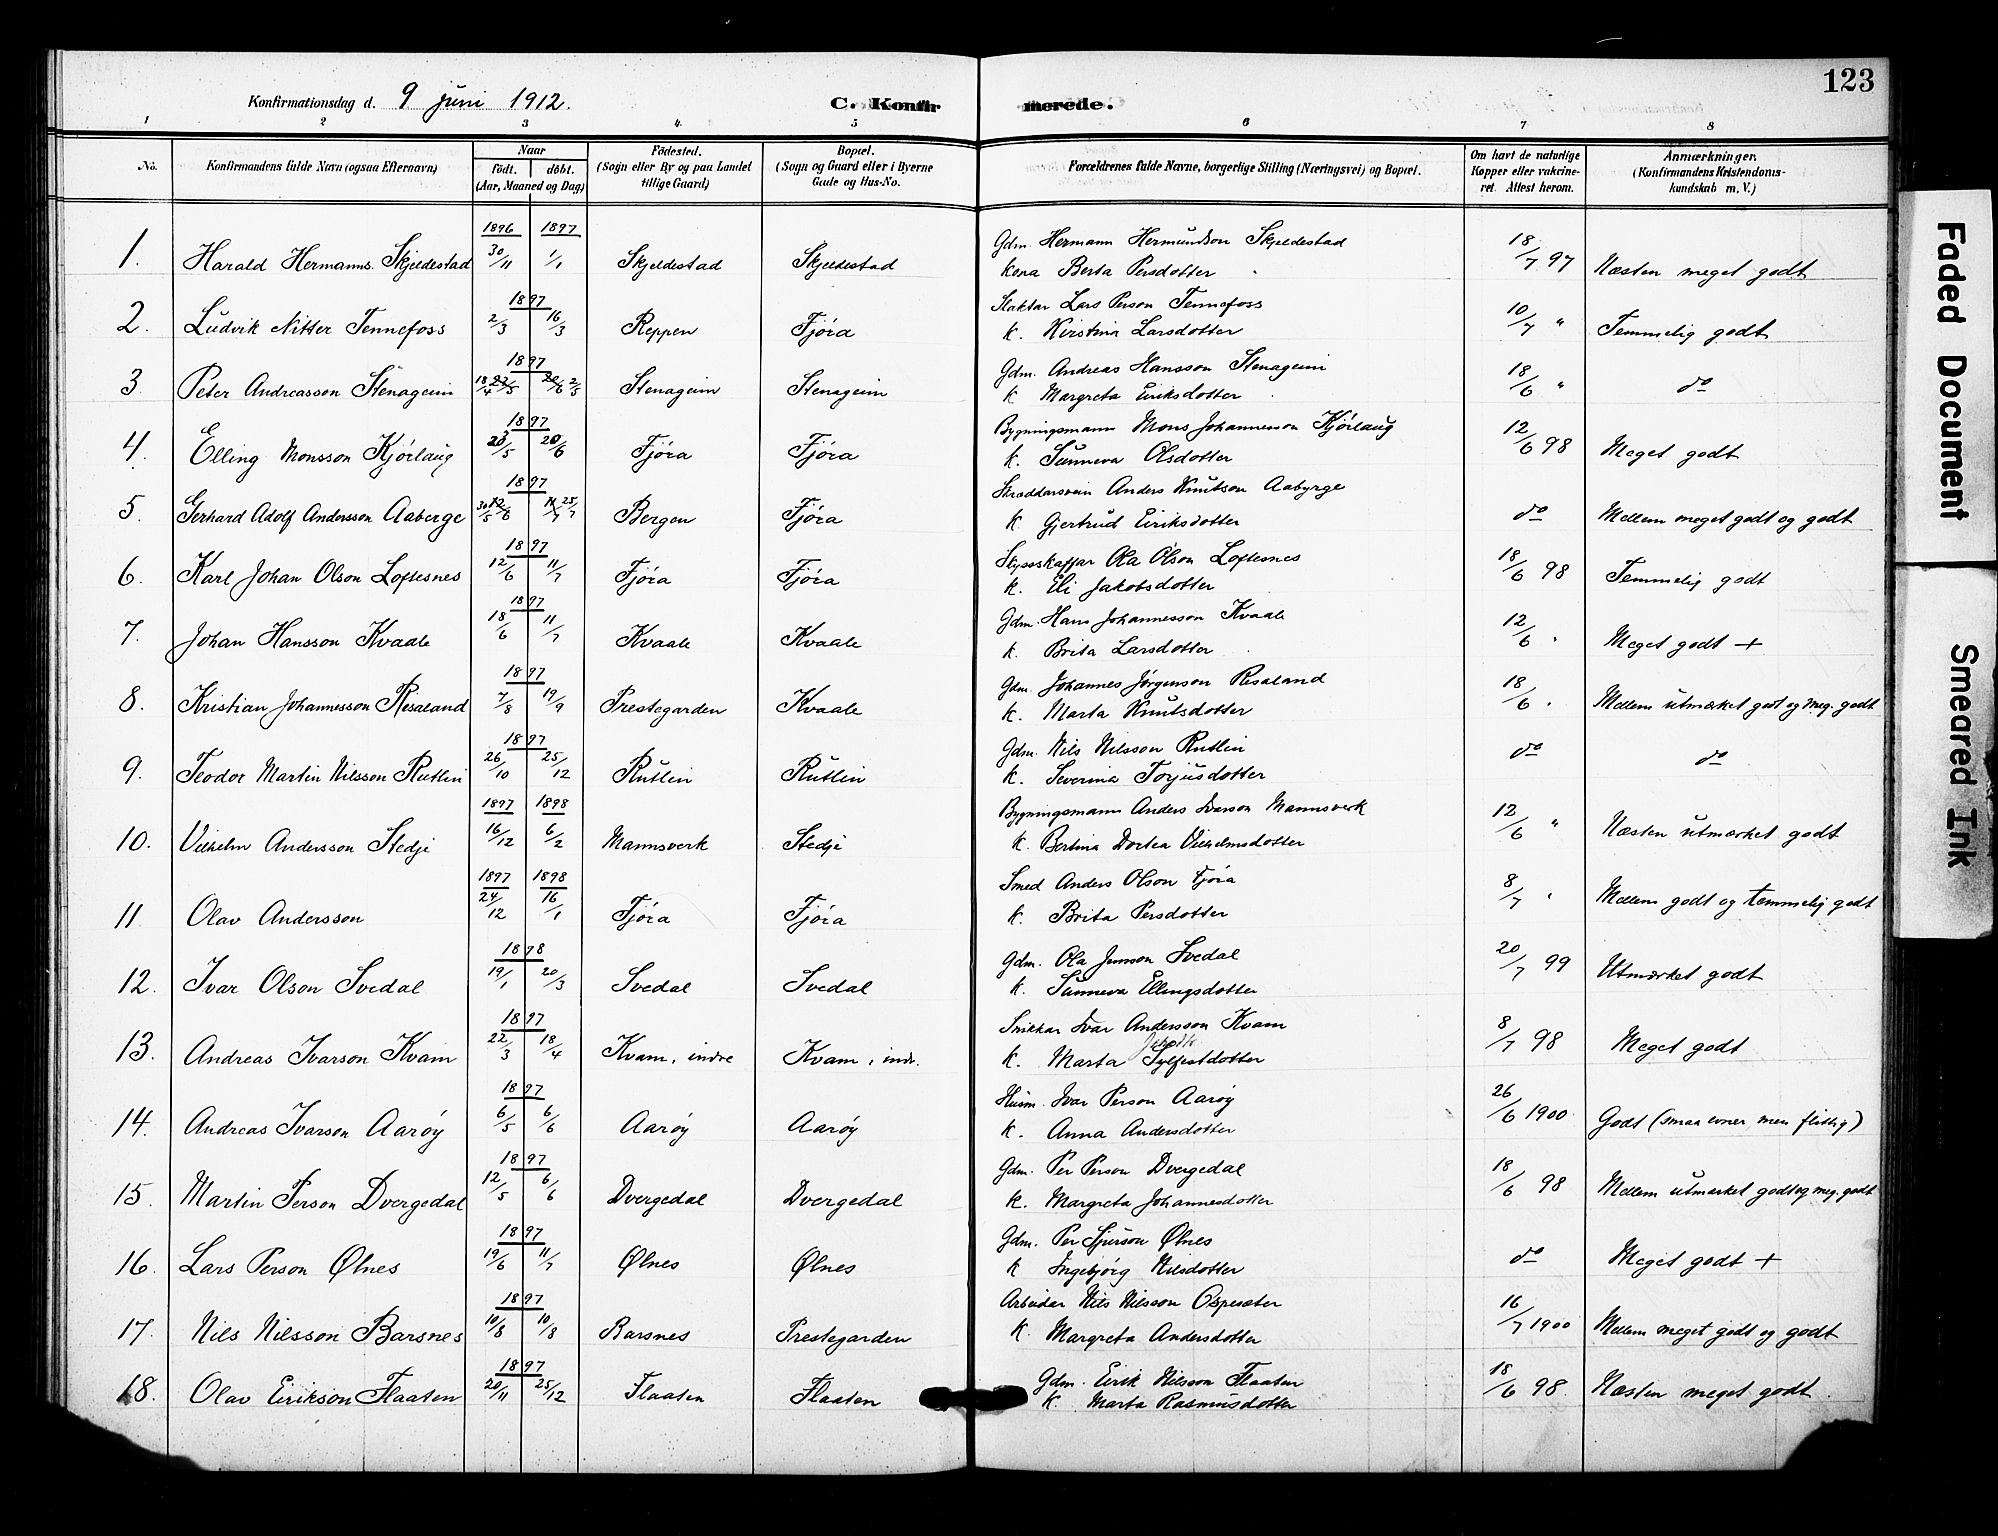 123
Konfirmationsdag d. 9 juni 1912. C. Konfirmerede.
1 2 3 4. 5 6 7 8
No. Konfirmandens fulde Navn (ogsaa Efternavn) Naar født. døbt. (Aar, Maaned og Dag) Fødested. (Sogn eller By og paa Landet tillige Gaard) Bopæl. (Sogn og Gaard eller i Byerne Gade og Hus-No. Forældrenes fulde Navne, borgerlige Stilling (Næringsvei) og Bopæl. Om havt de naturlige Kopper eller vakcineret. Attest herom. Anmærkninger. (Konfirmandens Kristendomskundskab m. V.)
1896 1897
1. Harald Hermanns. Skjeldestad 30/11 1/1 Skjeldestad Skjeldestad Gdm. Hermann Hermundson Skjeldestad 18/7 97 Næsten meget godt
kona Berta Persdotter
1897
2. Ludvik Nitter Tennefoss 2/3 16/3 Reppen Fjøra Slaktar Lars Person Tennefoss 10/7 " Temmelig godt
k. Kirstina Larsdotter
1897
3. Peter Andreasson Stenageim 18/4 22/5 20/6 2/5 Stenageim Stenageim Gdm. Andreas Hansson Stenageim 18/6 " do
k Margreta Eiriksdotter
1897
4. Elling Monsson Kjørlaug 23/5 20/6 Fjøra Fjøra Bygningsmann Mons Johannesson Kjørlaug 12/6 98 Meget godt
k. Sunneva Olsdotter
1897
5. Gerhard Adolf Andersson Aaberge 30/5 12/6 11/7 25/7 Bergen Fjøra Skræddarsvein Anders Knutson Aabyrge do Mellem meget godt og godt
k. Gjertrud Eiriksdotter
1897
6. Karl Johan Olson Loftesnes 12/6 11/7 Fjøra Fjøra Skysskaffar Ola Olson Loftesnes 18/6 98 Temmelig godt
k. Eli Jakobsdotter
1897
7. Johan Hansson Kvaale 18/6 11/7 Kvaale Kvaale Gdm. Hans Johannesson Kvaale 12/6 " Meget godt +
k. Brita Larsdotter
1897
8. Kristian Johannesson Resaland 7/8 19/9 Prestegarden Kvaale Gdm. Johannes Jørgenson Resaland 18/6 " Mellem utmærket godt og meg. godt
k. Marta Knutsdotter
1897
9. Teodor Martin Nilsson Rutlin 26/10 25/12 Rutlin Rutlin Gdm. Nils Nilsson Rutlin do do
k. Severina Torjusdotter
1897 1898
10. Vilhelm Andersson Stedje 16/12 6/2 Mannsverk Stedje Bygningsmann Anders Ivarson Mannsverk 12/6 " Næsten utmærket godt
k. Bertina Dortea Vilhelmsdotter
1897 1898
11 Olav Andersson 24/12 16/1 Fjøra Fjøra Smed Anders Olson Fjøra 8/7 " Mellem godt og temmelig godt
k. Brita Persdotter
1898
12. Ivar Olson Svedal 19/1 20/3 Svedal Svedal Gdm. Ola Jensson Svedal 20/7 99 Utmærket godt
k. Sunneva Ellingsdotter
1897
13. Andreas Ivarson Kvam 22/3 18/4 Kvam, indre Kvam, indr. Snikkar Ivar Andersson Kvam 8/7 98 Meget godt
k. Marta Sylfestdotter
1897
14. Andreas Ivarson Aarøy 6/5 6/6 Aarøy Aarøy Husm. Ivar Person Aarøy 26/6 1900 Godt (smaa evner men flittig)
k. Anna Andersdotter
1897
15. Martin Person Dvergedal 12/5 6/6 Dvergedal Dvergedal Gdm. Per Person Dvergedal 18/6 98 Mellem utmærket godt og meg. godt
k. Margreta Johannesdotter
1897
16. Lars Person Ølnes 19/6 11/7 Ølnes Ølnes Gdm. Per Sjurson Ølnes do Meget godt +
k Ingebjørg Nilsdotter
1897
17. Nils Nilsson Barsnes 10/8 10/8 Barsnes Prestegarden Arbeidar Nils Nilsson Ospesæter 16/7 1900 Mellem meget godt og godt
k. Margreta Andersdotter
1897
18. Olav Eirikson Flaaten 20/11 25/12 Flaaten Flaaten Gdm. Eirik Nilsson Flaaten 18/6 98 Næsten meget godt.
k Marta Rasmusdotter
Faded Document
Smeared Ink